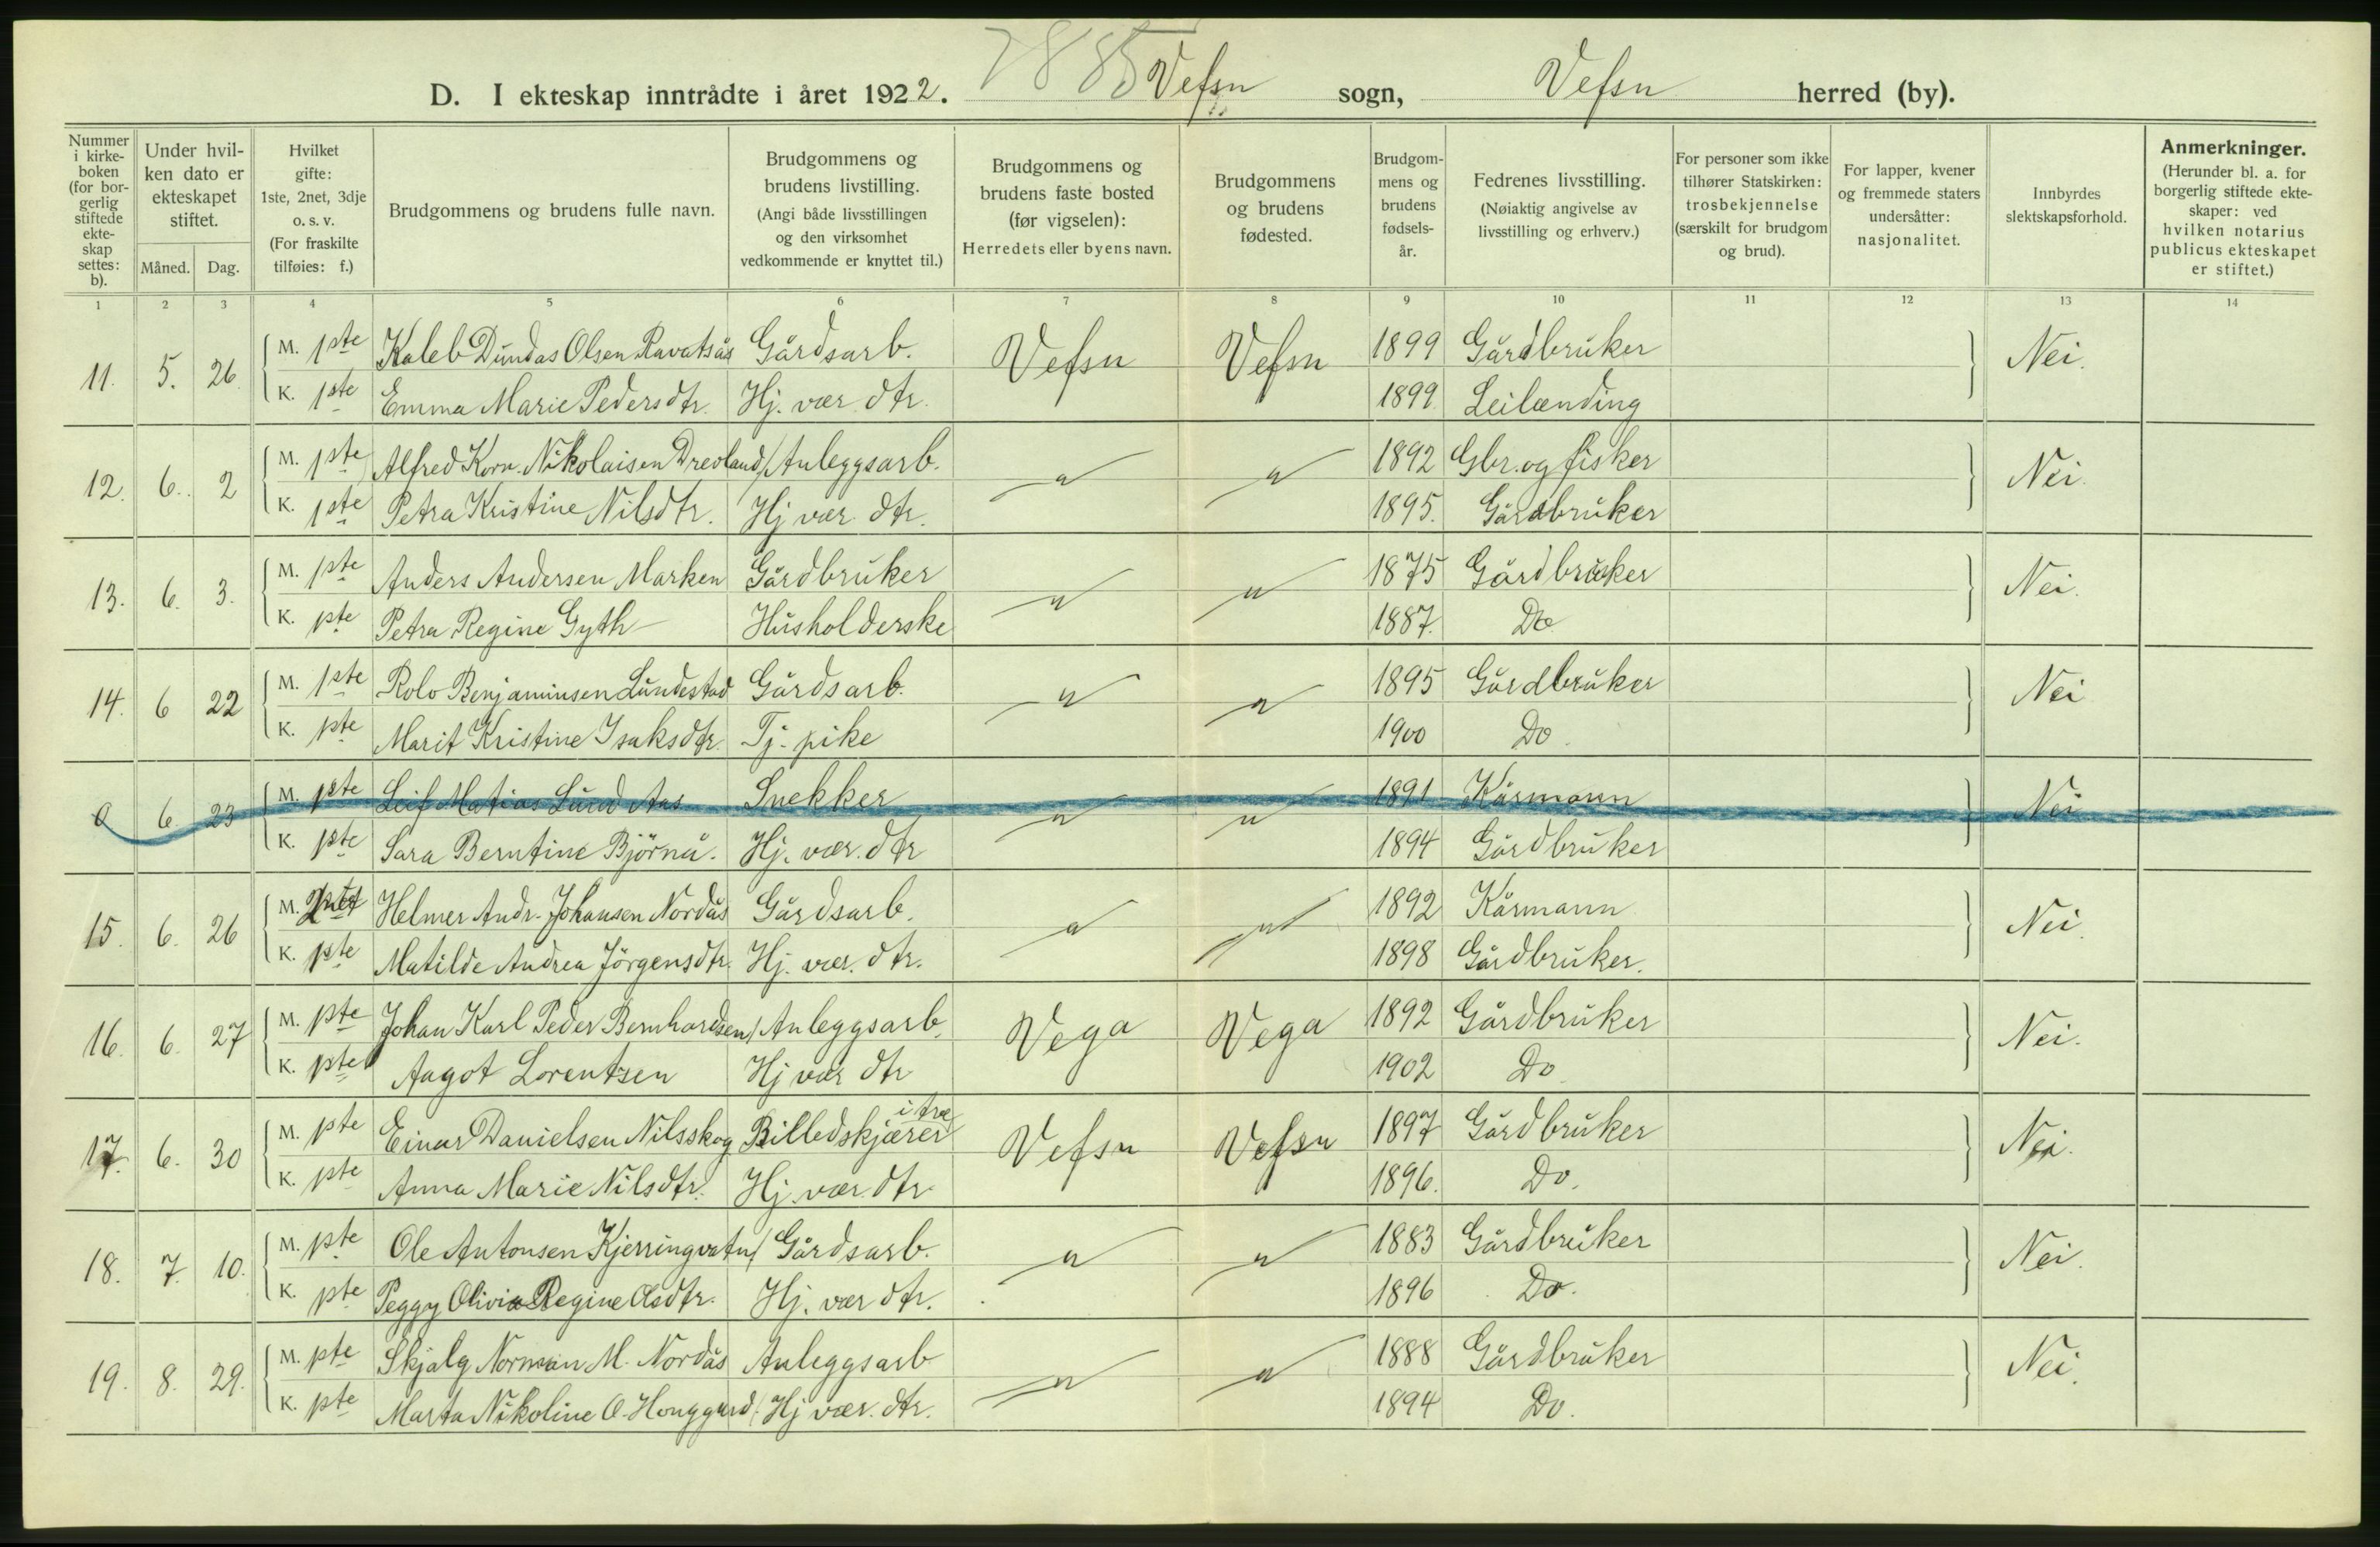 7885
D. I ekteskap inntrådte i året 1922. Vefsn sogn, Vefsn herred (by).
Nummer i kirke- boken (for bor- gerlig stiftede ekte- skap settes: b).
Under hvil- ken dato er ekteskapet stiftet.
Måned. Dag.
Hvilket gifte: 1ste, 2net, 3dje o. s. v. (For fraskilte tilføies: f.)
Brudgommens og brudens fulle navn.
Brudgommens og brudens livstilling. (Angi både livsstillingen og den virksomhet vedkommende er knyttet til.)
Brudgommens og brudens faste bosted (før vigselen): Herredets eller byens navn.
Brudgommens og brudens fødested.
Brudgom- mens og brudens fødsels- år.
Fedrenes livsstilling. (Nøiaktig angivelse av livsstilling og erhverv.)
For personer som ikke tilhører Statskirken: trosbekjennelse (særskilt for brudgom og brud).
For lapper, kvener og fremmede staters undersåtter: nasjonalitet.
Innbyrdes slektskapsforhold.
Anmerkninger. (Herunder bl. a. for borgerlig stiftede ekte- skaper: ved hvilken notarius publicus ekteskapet er stiftet.)
1 2 3 4 5 6 7 8 9 10 11 12 13 14
11. 5. 26. M. 1ste Kaleb Dundas Olsen Ravatsås Gårdsarb. Vefsn Vefsn 1899 Gårdbruker Nei.
K. 1ste Emma Marie Pedersdtr. Hj. vær. dtr. 1899 Leilænding
12. 6. 2 M. 1ste Alfred Korn. Nikolaisen Drevland / Anleggsarb. " " 1892 Gbr. og fisker Nei.
K. 1ste Petra Kristine Nilsdtr. Hj vær. dtr. 1895. Gårdbruker
13. 6. 3. M. 1ste Anders Andersen Marken Gårdbruker " " 1875 Gårdbruker Nei.
K. 1ste Petra Regine Gyth Husholderske 1887. Do
14. 6 22 M. 1ste Rolo Benjaminsen Lundestad Gårdsarb. " " 1895 Gårdbruker Nei
K. 1ste Marit Kristine Isaksdtr. Tj. pike 1900 Do.
0 6. 23 M. 1ste Leif Matias Lund Aas Snekker " " 1891 Kårmann Nei
K. 1ste Sara Berntine Björnå. Hj. vær. dtr 1894 Gårdbruker
15. 6. 26 M. 2net Helmer Andr. Johansen Nordås Gårdsarb. " " 1892 Kårmann Nei.
K. 1ste Matilde Andrea Jörgensdtr. Hj. vær. dtr. 1898 Gårdbruker.
16. 6. 27 M. 1ste Johan Karl Peder Bernhardsen / Anleggsarb. Vega Vega 1892 Gårdbruker Nei.
K. 1ste Aagot Lorentzen Hj vær dtr 1902 Do
17. 6. 30 M. 1ste Einar Danielsen Nilsskog Billedskjærer i træ Vefsn Vefsn 1897 Gårdbruker Nei.
K. 1ste Anna Marie Nilsdtr. Hj. vær. dtr. 1896. Do.
18. 7. 10. M. 1ste Ole Antonsen Kjerringvatn / Gårdsarb. " " 1883 Gårdbruker Nei.
K. 1ste Peggy Olivia Regine Olsdtr. Hj. vær dtr. 1896 Do.
19. 8. 29. M. 1ste Skjalg Norman M. Nordås Anleggsarb " " 1888 Gårdbruker Nei.
K. 1ste Marta Nikoline O. Honggard. / Hj vær. dtr. 1894 Do.